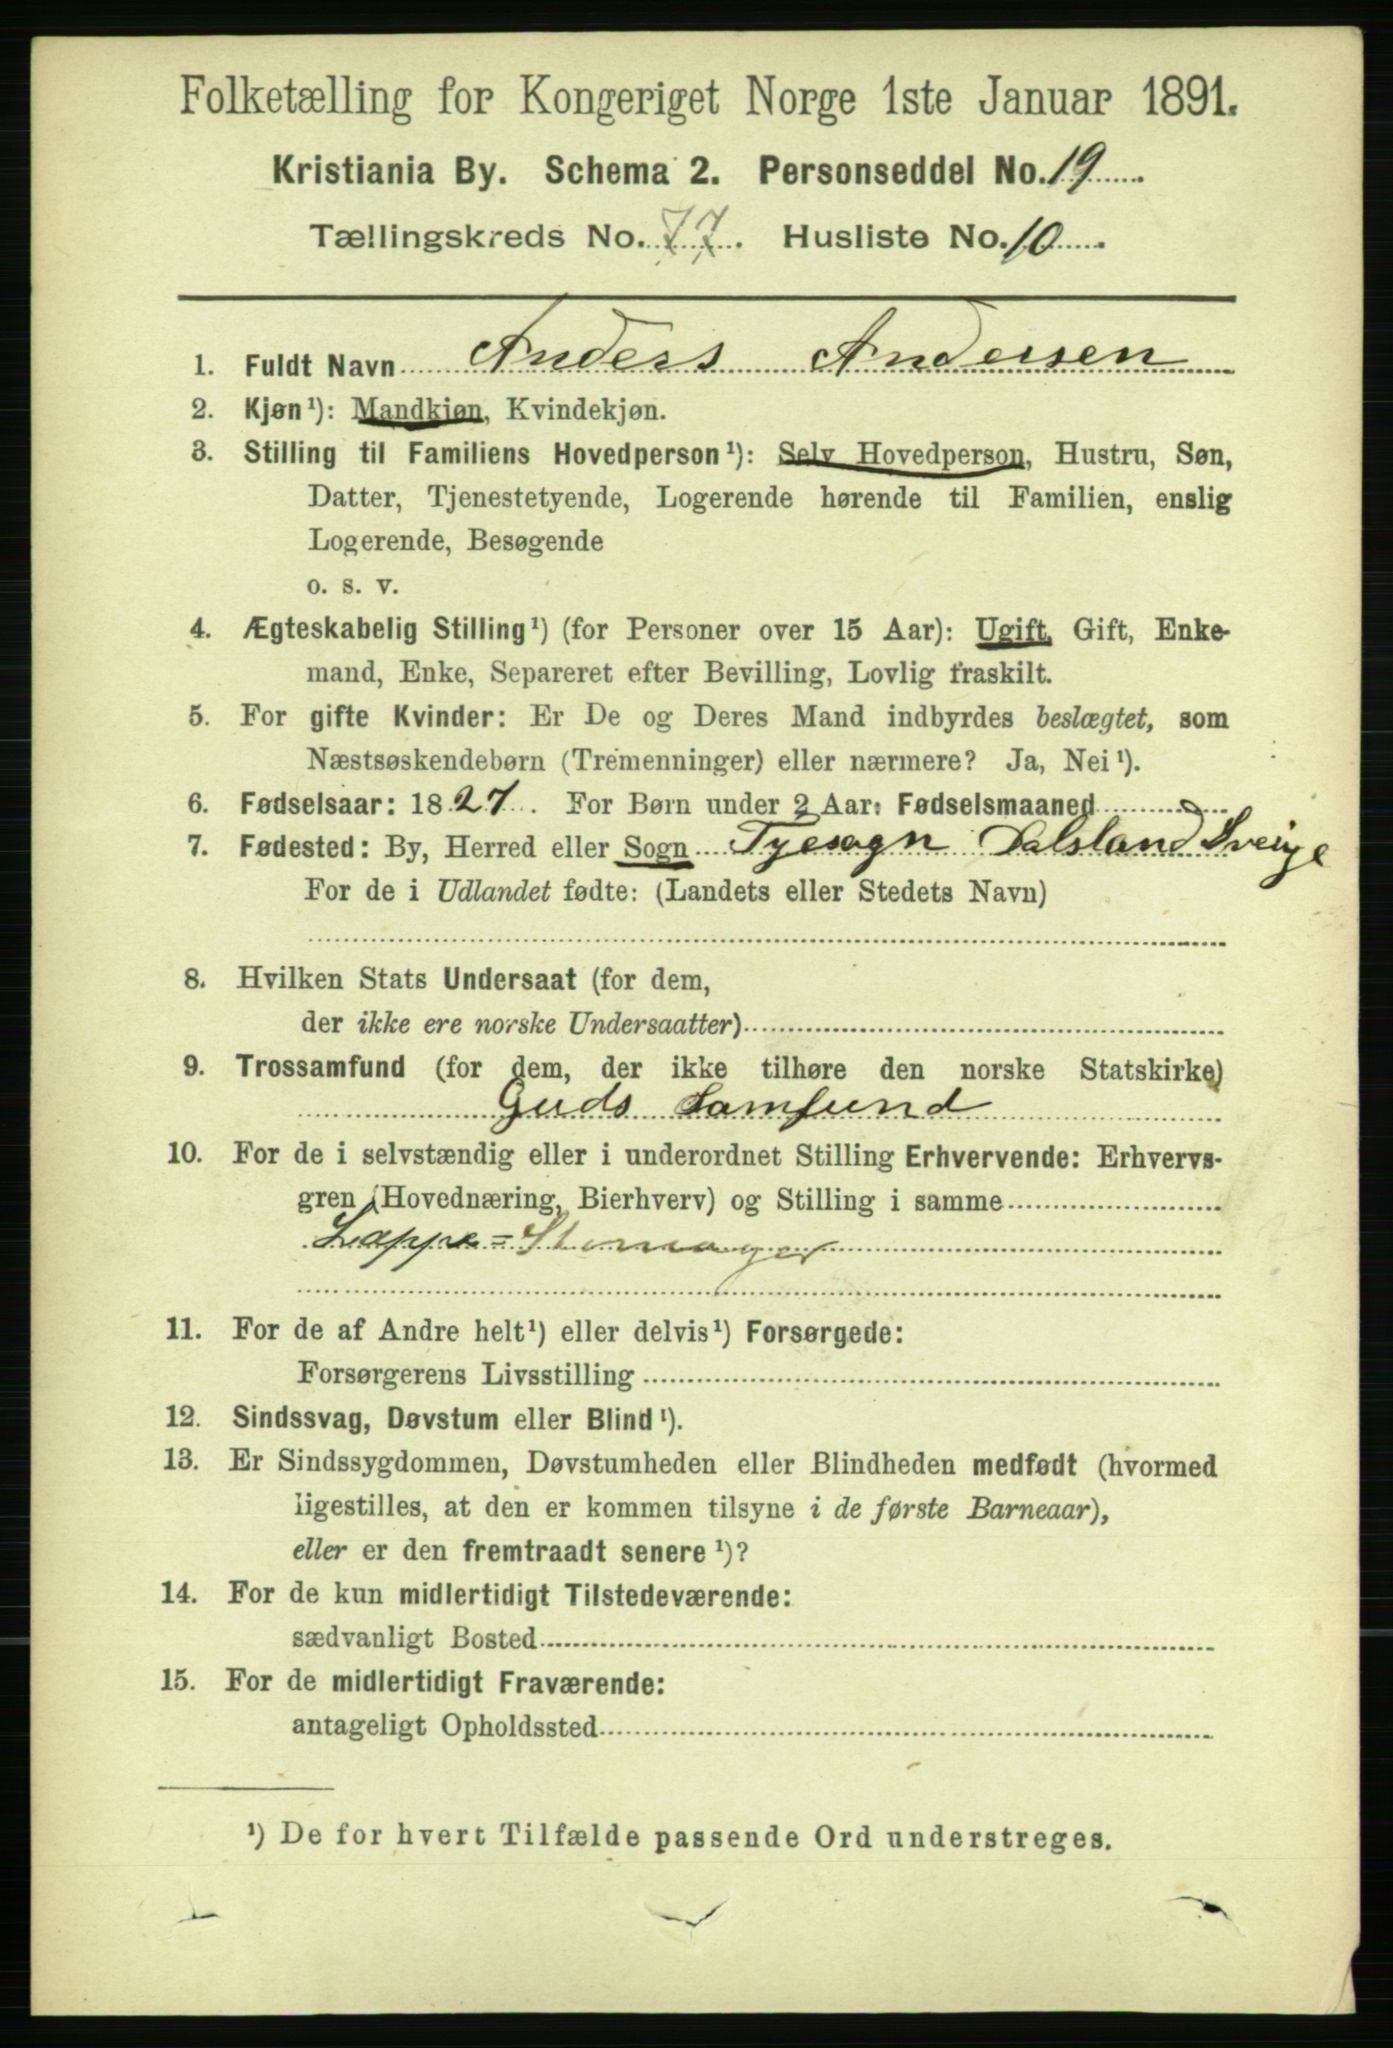 Folketælling for Kongeriget Norge 1ste Januar 1891.
Kristiania By. Schema 2. Personseddel No. 19
Tællingskreds No. 77. Husliste No. 10.
1. Fuldt Navn Anders Andersen
2. Kjøn¹): Mandkjøn, Kvindekjøn.
3. Stilling til Familiens Hovedperson¹): Selv Hovedperson, Hustru, Søn,
Datter, Tjenestetyende, Logerende hørende til Familien, enslig
Logerende, Besøgende
o. s. v.
4. Ægteskabelig Stilling¹) (for Personer over 15 Aar): Ugift, Gift, Enke-
mand, Enke, Separeret efter Bevilling, Lovlig fraskilt.
5. For gifte Kvinder: Er De og Deres Mand indbyrdes beslægtet, som
Næstsøskendebørn (Tremenninger) eller nærmere? Ja, Nei¹).
6. Fødselsaar: 1827. For Børn under 2 Aar: Fødselsmaaned
7. Fødested: By, Herred eller Sogn Tyesogn Dalsland Sverige
For de i Udlandet fødte: (Landets eller Stedets Navn)
8. Hvilken Stats Undersaat (for dem,
der ikke ere norske Undersaatter)
9. Trossamfund (for dem, der ikke tilhøre den norske Statskirke)
Guds Samfund
10. For de i selvstændig eller i underordnet Stilling Erhvervende: Erhvervs-
gren (Hovednæring, Bierhverv) og Stilling i samme
Lappe=
11. For de af Andre helt¹) eller delvis¹) Forsørgede:
Forsørgerens Livsstilling
12. Sindssvag, Døvstum eller Blind¹).
13. Er Sindssygdommen, Døvstumheden eller Blindheden medfødt (hvormed
ligestilles, at den er kommen tilsyne i de første Barneaar),
eller er den fremtraadt senere¹)?
14. For de kun midlertidigt Tilstedeværende:
sædvanligt Bosted
15. For de midlertidigt Fraværende:
antageligt Opholdssted
¹) De for hvert Tilfælde passende Ord understreges.